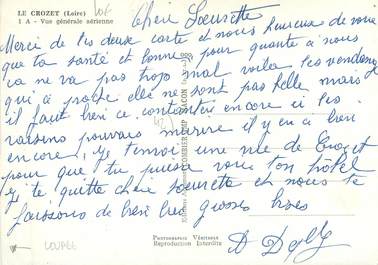 LE CROZET (Loire)
1 A - Vue générale aérienne
Chère Soeurette
Merci de tes deux carte et nous heureux de voir
que ta santé et bonne pour quante à nous
ca ne va pas trop mal voila les vendange
qui a proche elle ne sont pas belle mais
il faut bien ce contenter encore si les
raisins pouvais murire il y en a bien
encore. Je t'envoi une vue de Crozet
pour que tu puisse voir ton hôtel
je te quitte chère soeurette et nous te
faissons de bien bien grosses bises
COMBIER IMP. MACON
Photographie Véritable
Reproduction Interdite
LOUP66